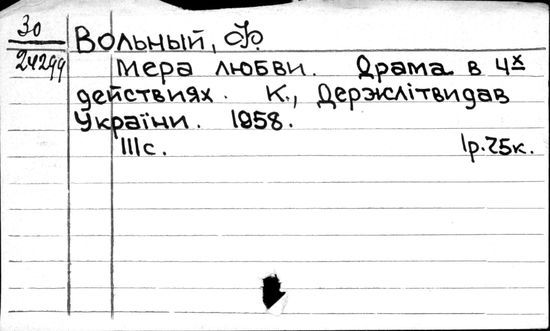 30
24299
Вольный, Ф.
Мера любви. Драма в 4х
действиях. К., Держлітвидав
України. 1958.
111с. 1р.75к.